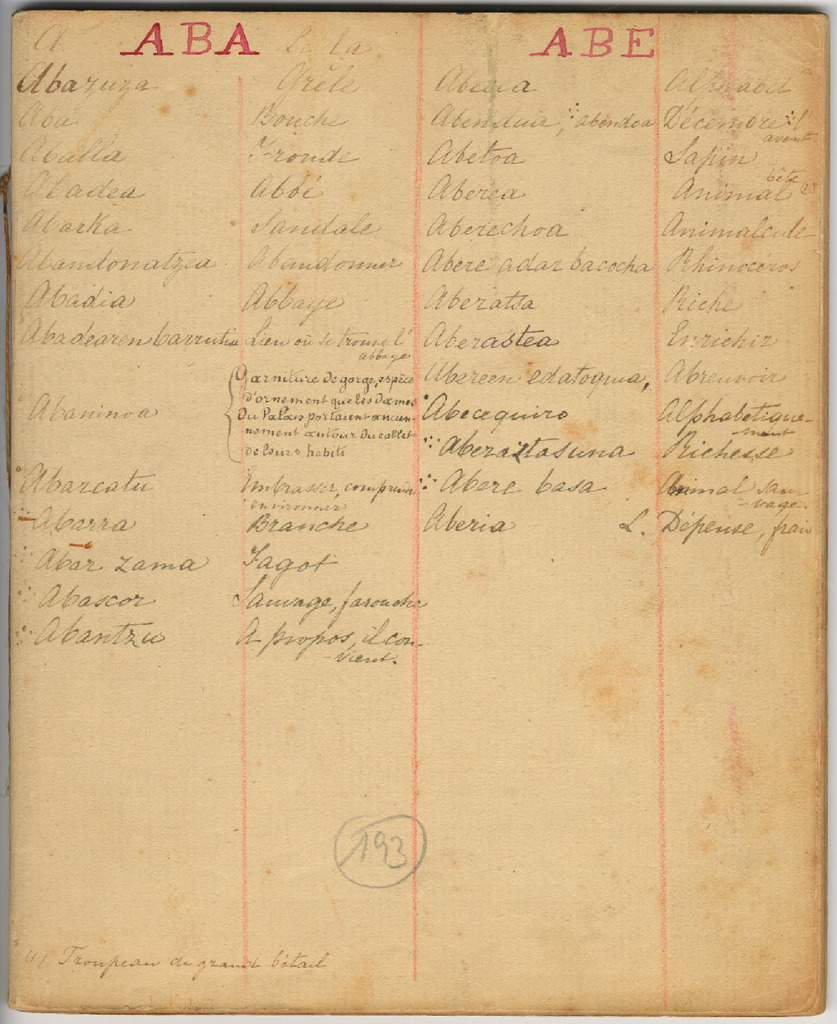 ABA
ABE
Abazuza Grêle
Aba Bouche
Aballa Frondi
Abadea Abbé
Abarka Sandale
Abandonatzea Abandonner
Abadia Abbaye
Abadearen barrutia Lieu où se trouve l'
abbaye
Abaninoa
Garniture de gorge, espèce
d'ornement que les Dames
du Palais portaient ancien-
nement autour du collet
de leurs habits
Abarcatu Embrasser, comprendre
environner
Abarra Branche
Abar zama Fagot
Abascor Sauvage, farouche
Abantzu A propos, il con-
vient.
Abecea Alphabet
Abendua, abendoa Décembre l'
avent
Abetoa Sapin
bête
Aberea Animal (1)
Aberechoa Animalcule
Abere adar bacocha Rhinocéros
Aberatsa Riche
Aberastea Enrichir
Abereen edatoquia, Abreuvoir
Abecequiro Alphabétique-
ment
Aberaztasuna Richesse
Abere basa Animal sau-
vage.
Aberia L. Dépense, frais
193
(1) Troupeau de grand bétail